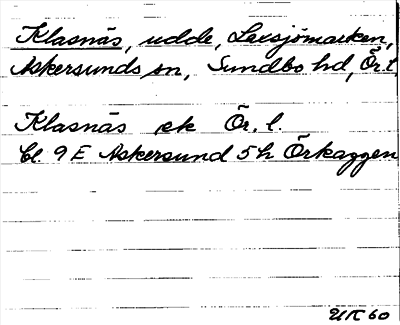 Klasnäs, udde, Lessjömarken,
Askersunds sn, Sundbo hd, Ör.l.
Klasnäs ek Ör. l.
bl. 9 E Askersund 5 h Örkaggen
UK 60